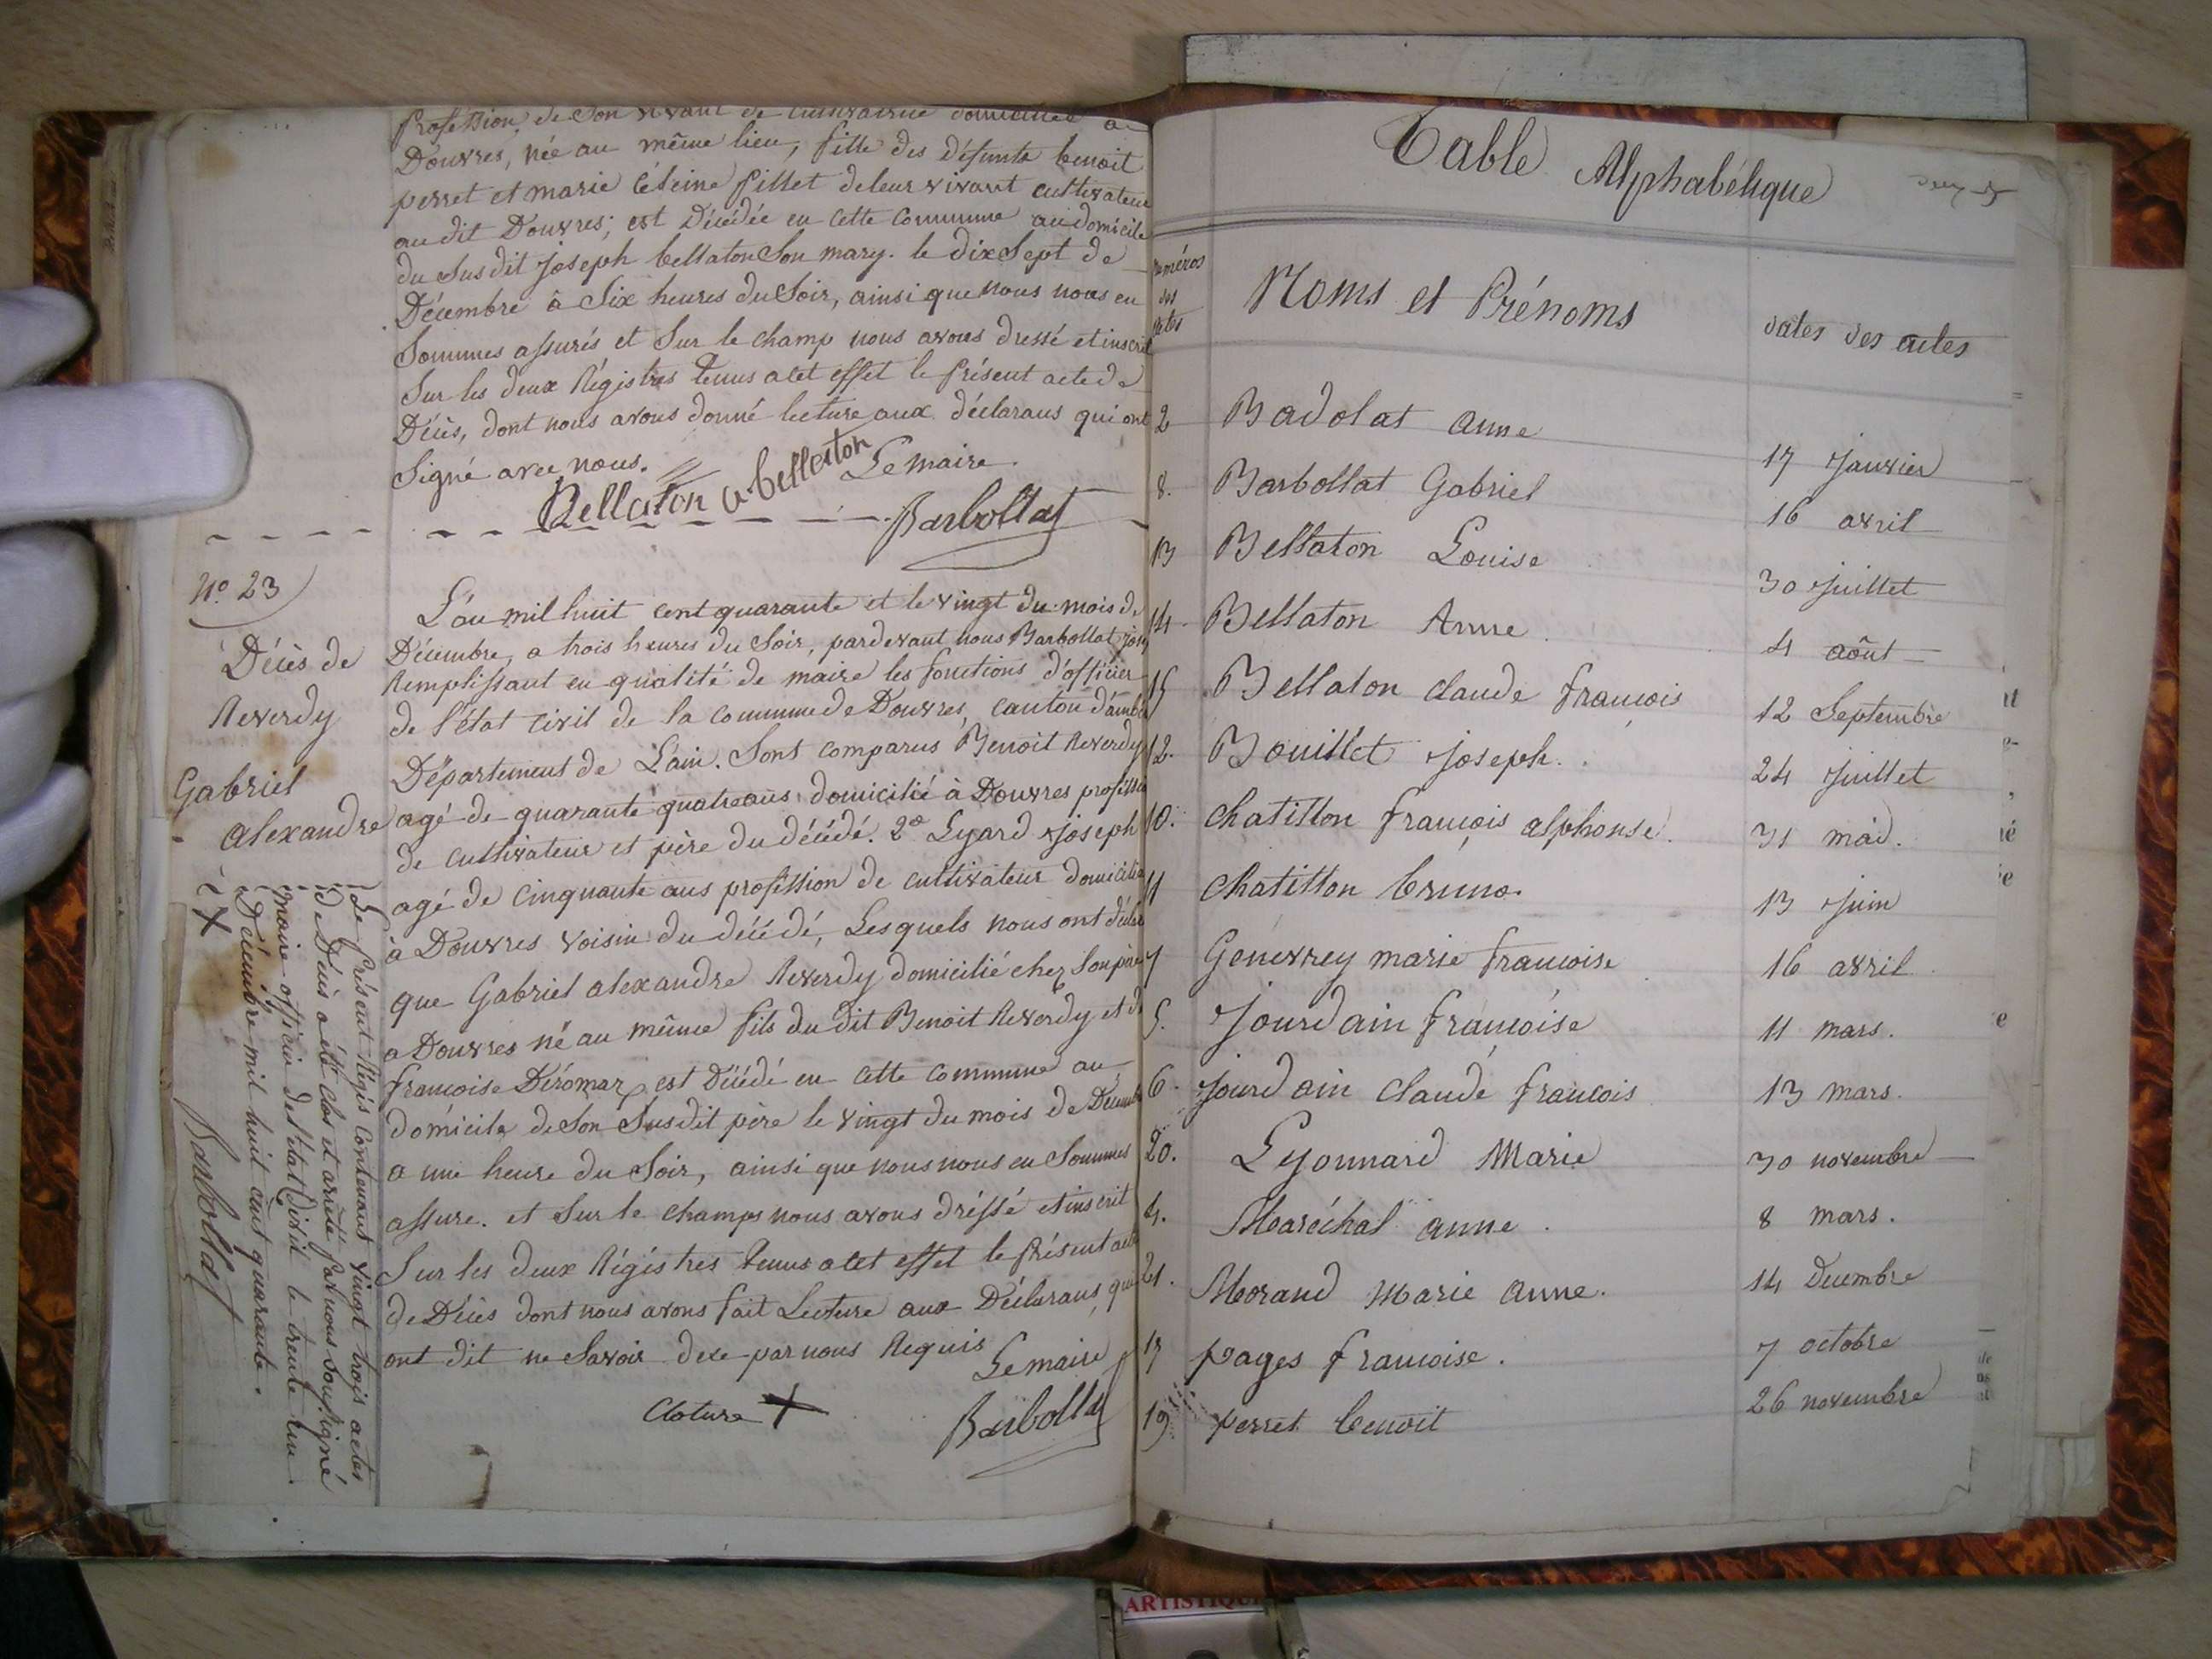 profession, de son vivant de cultivatrice domiciliée a
Douvres, née au même lieu, fille des défunts benoit
perret et marie céleine pillet de leur vivant cultivateur
au dit Douvres; est Décédée en cette commune au domicile
du susdit joseph bellaton son mary. le dix sept de
Décembre à Six heures du Soir, ainsi que nous nous en
Sommes assurés et Sur le champ nous avons dressé et inscrit
Sur les deux Régistres tenus a cet effet le présent acte de
Décès, dont nous avons donné lecture aux déclarans qui ont
Signé avec nous.
Bellaton a. bellaton Le maire
Barbollat
N.º 23
Décès de
Reverdy
Gabriel
alexandre
L'an mil huit cent quarante et le vingt du mois de
Décembre, a trois heures du Soir, pardevant nous Barbollat
Remplissant en qualité de maire les fonctions d'officier
de l'état civil de la commune de Douvres, canton d'amb
Département de L'ain. Sont comparus Benoit Reverdy
agé de quarante quatre ans domicilié à Douvres professio
de cultivateur et père du décédé. 2º Lyard joseph
agé de cinquante ans profession de cultivateur domicilié
à Douvres voisin du décédé, Lesquels nous ont déclar
que Gabriel alexandre Reverdy domicilié chez Son père
a Douvres né au même fils du dit Benoit Reverdy et d
francoise Déromaz, est Décédé en cette commune au
domicile de Son Susdit père le vingt du mois de Décemb
a une heure du Soir, ainsi que nous nous en Sommes
assure. et Sur le champs nous avons dréssé et inscrit
Sur les deux Régistres tenus a cet effet le présent acte
de Décès dont nous avons fait Lecture aux Déclarans, qui
ont dit ne Savoir de ce par nous Requis
Le maire
Cloture X
Barbollat
X
Le présent Régis contenant vingt trois actes
de Décès a été clos et arrêté par nous soussigné
maire officier de l'état Civil le trente un
Décembre mil huit cent quarante.
Barbollat
Table Alphabétique
numéros des actes
Noms et Prénoms
dates des actes
2 Badolat anne 17 Janvier
8. Barbollat Gabriel 16 avril
13 Bellaton Louise 30 juillet
14 Bellaton Anne 4 août
15 Bellaton claude francois 12 Septembre
12. Bouillet joseph. 24 juillet
10. chatillon francois alphonse. 31 mai.
11 chatillon bruno. 13 juin
7 Genevrey marie francoise 16 avril
5. Jourdain francoise 11 mars.
6. jourdain claude francois 13 mars.
20. Lyonnard Marie 30 novembre
4. Maréchal anne. 8 mars.
21. Morand Marie Anne. 14 Decembre
17 pages francoise. 7 octobre
19 perret benoit 26 novembre
ARTISTIQUE